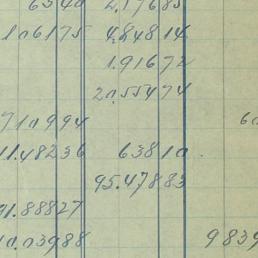 6540 2.17685
106175 4.84814
1.91672
20.55474
710994 60
11.48236 63810.
95.47883
91.88827
10.03988 9839